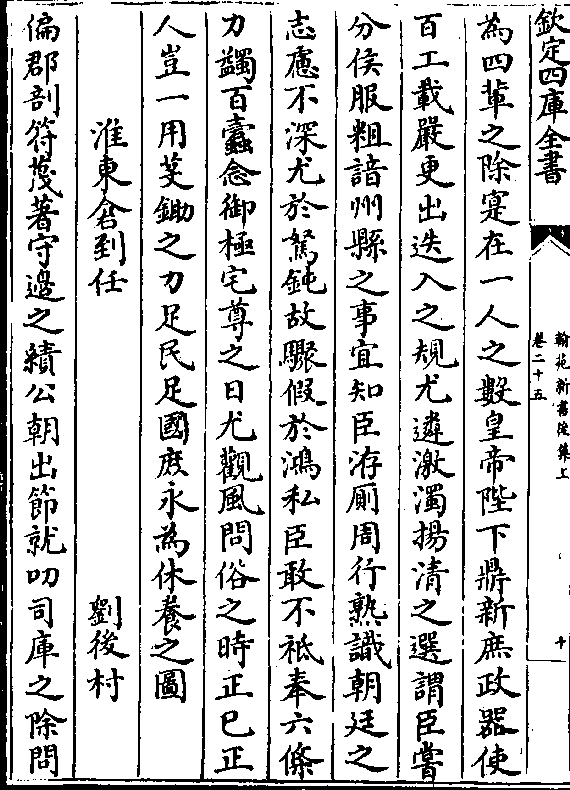 欽定四庫全書
翰苑新書後集上
卷二十五
十
為四輩之除寔在一人之數皇帝陛下鼎新庶政器使
百工載嚴更出迭入之規尤遴激濁揚清之選謂臣嘗
分侯服粗諳州縣之事宜知臣洊厠周行熟識朝廷之
志慮不深尤於駑鈍故驟假於鴻私臣敢不祗奉六條
力蠲百蠧念御極宅尊之日尤觀風問俗之時正已正
人豈一用芟鋤之力足民足國庶永為休養之圖
淮東倉到任 劉後村
偏郡剖符蔑著守邊之績公朝出節就叨司庫之除問